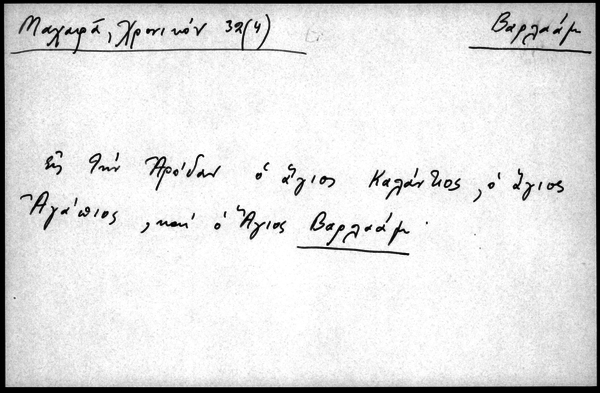 Μαχαιρᾶ, Χρονικόν 32(4)
Βαρλαάμ
εἰς τὴν Ἀρόδαν ὁ ἅγιος Καλάντιος, ὁ ἅγιος
Ἀγάπιος, καὶ ὁ Ἅγιος Βαρλαάμ